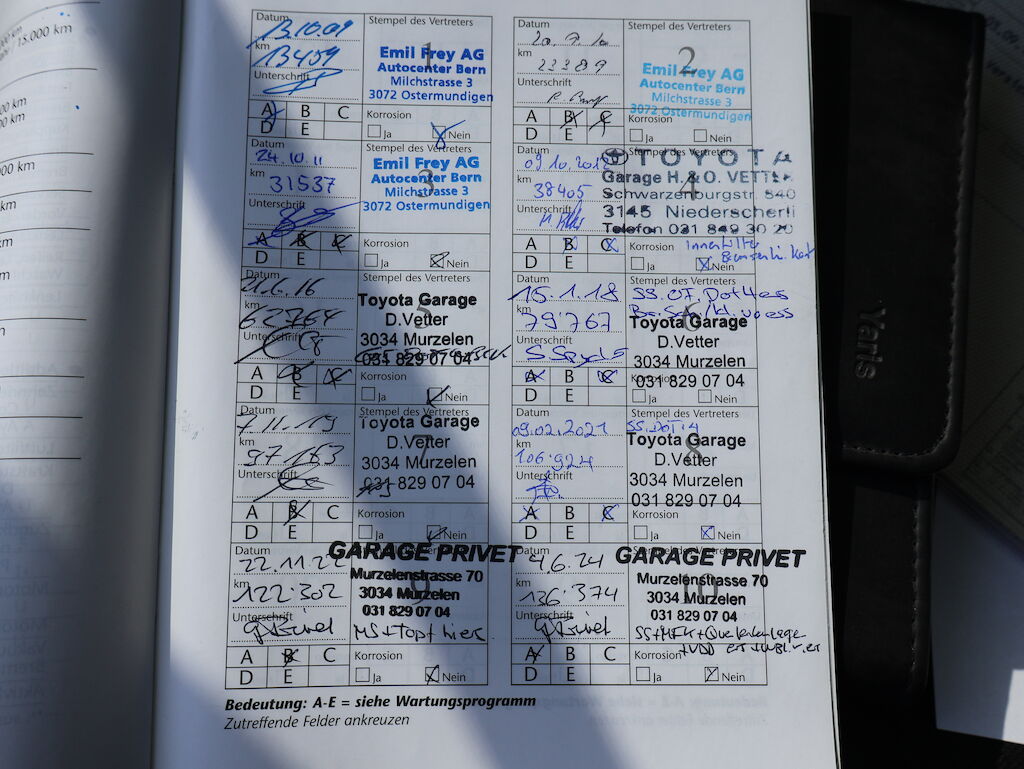 15.000 km
km
Datum
13.10.09
km
13459
Unterschrift
Stempel des Vertreters
1
Emil Frey AG
Autocenter Bern
Milchstrasse 3
3072 Ostermundigen
A B C
D E
Korrosion
Ja Nein
Datum
20.9.10
km
22389
Unterschrift
Stempel des Vertreters
2
Emil Frey AG
Autocenter Bern
Milchstrasse 3
3072 Ostermundigen
A B C
D E
Korrosion
Ja Nein
Datum
24.10.11
31537
Unterschrift
Stempel des Vertreters
3
Emil Frey AG
Autocenter Bern
Milchstrasse 3
3072 Ostermundigen
A B C
D E
Korrosion
Ja Nein
Datum
09.10.201
km
38405
Unterschrift
Stempel des Vertreters
4
TOYOTA
Garage H.& O. VETTER
Schwarzenburgstr. 840
3145 Niederscherli
Telefon 031 849 30 20
A B C
D E
Korrosion
Innenfilter
Ja Nein
Datum
.6.16
km
62764
Unterschrift
Stempel des Vertreters
5
Toyota Garage
D.Vetter
3034 Murzelen
031 829 07 04
A B C
D E
Korrosion
Ja Nein
Datum
15.1.18
km
79767
Unterschrift
Stempel des Vertreters
SS.OF.Dot4es
6
Toyota Garage
D.Vetter
3034 Murzelen
031 829 07 04
A B C
D E
Korrosion
Ja Nein
Datum
7.11.19
km
97183
Unterschrift
Stempel des Vertreters
7
Toyota Garage
D.Vetter
3034 Murzelen
031 829 07 04
A B C
D E
Korrosion
Ja Nein
Datum
09.02.2021
km
106.924
Unterschrift
Stempel des Vertreters
SS.DOT4
8
Toyota Garage
D.Vetter
3034 Murzelen
031 829 07 04
A B C
D E
Korrosion
Ja Nein
Datum
22.11.22
km
122.302
Unterschrift
9
GARAGE PRIVET
Murzelenstrasse 70
3034 Murzelen
031 829 07 04
MS+Topf hi
A B C
D E
Korrosion
Ja Nein
Datum
4.6.24
km
136.374
Unterschrift
10
GARAGE PRIVET
Murzelenstrasse 70
3034 Murzelen
031 829 07 04
SS+MFK+
A B C
D E
Korrosion
Ja Nein
Bedeutung: A-E = siehe Wartungsprogramm
Zutreffende Felder ankreuzen
Yaris